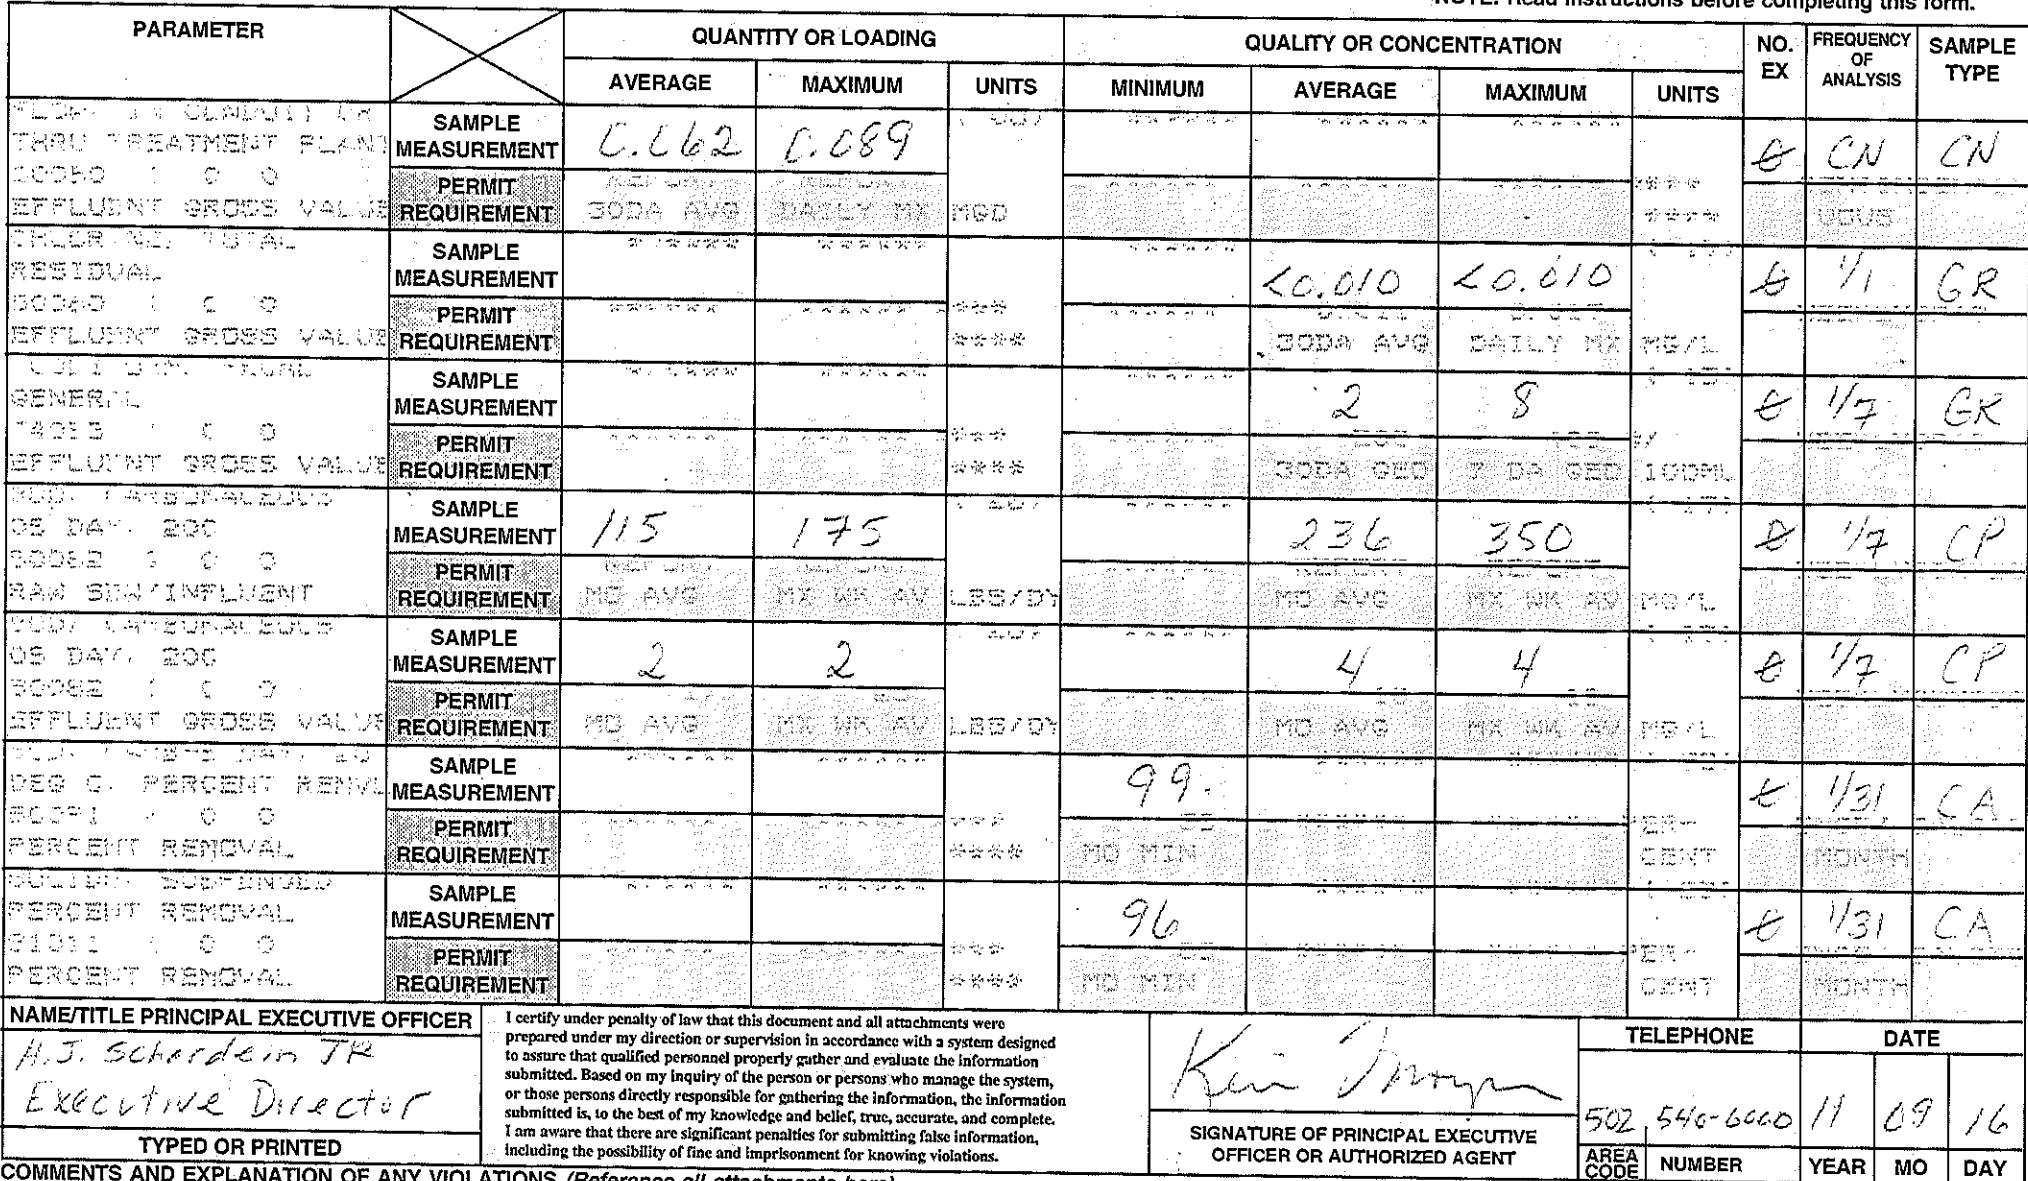 NOTE: Read instructions before completing this form.
PARAMETER
QUANTITY OR LOADING
QUALITY OR CONCENTRATION
NO. EX
FREQUENCY OF ANALYSIS
SAMPLE TYPE
AVERAGE MAXIMUM UNITS MINIMUM AVERAGE MAXIMUM UNITS
THRU TREATMENT PLANT
EFFLUENT GROSS VALUE
SAMPLE MEASUREMENT 0.062 0.089 CN CN
PERMIT REQUIREMENT 30DA AVG DAILY MX MGD ****
RESIDUAL
EFFLUENT GROSS VALUE
SAMPLE MEASUREMENT <0.010 <0.010 1/1 GR
PERMIT REQUIREMENT **** 30DA AVG DAILY MX MG/L
GENERAL
EFFLUENT GROSS VALUE
SAMPLE MEASUREMENT 2 8 1/7 GR
PERMIT REQUIREMENT **** 30DA GEO 7 DA GEO 100ML
05 DAY, 20C
RAW SEW/INFLUENT
SAMPLE MEASUREMENT 115 175 236 350 1/7 CP
PERMIT REQUIREMENT MO AVG MX WK AV LBS/DY MO AVG MX WK AV MG/L
05 DAY, 20C
EFFLUENT GROSS VALUE
SAMPLE MEASUREMENT 2 2 4 4 1/7 CP
PERMIT REQUIREMENT MO AVG MX WK AV LBS/DY MO AVG MX WK AV MG/L
DEG C, PERCENT REMVL
PERCENT REMOVAL
SAMPLE MEASUREMENT 99. 1/31 CA
PERMIT REQUIREMENT **** MO MIN PER-CENT MONTH
PERCENT REMOVAL
PERCENT REMOVAL
SAMPLE MEASUREMENT 96 1/31 CA
PERMIT REQUIREMENT **** MO MIN PER-CENT MONTH
NAME/TITLE PRINCIPAL EXECUTIVE OFFICER
H.J. Schardein JR
Executive Director
TYPED OR PRINTED
I certify under penalty of law that this document and all attachments were
prepared under my direction or supervision in accordance with a system designed
to assure that qualified personnel properly gather and evaluate the information
submitted. Based on my inquiry of the person or persons who manage the system,
or those persons directly responsible for gathering the information, the information
submitted is, to the best of my knowledge and belief, true, accurate, and complete.
I am aware that there are significant penalties for submitting false information,
including the possibility of fine and imprisonment for knowing violations.
SIGNATURE OF PRINCIPAL EXECUTIVE
OFFICER OR AUTHORIZED AGENT
TELEPHONE
502 540-6000
AREA CODE NUMBER
DATE
11 09 16
YEAR MO DAY
COMMENTS AND EXPLANATION OF ANY VIOLATIONS (Reference all attachments here)